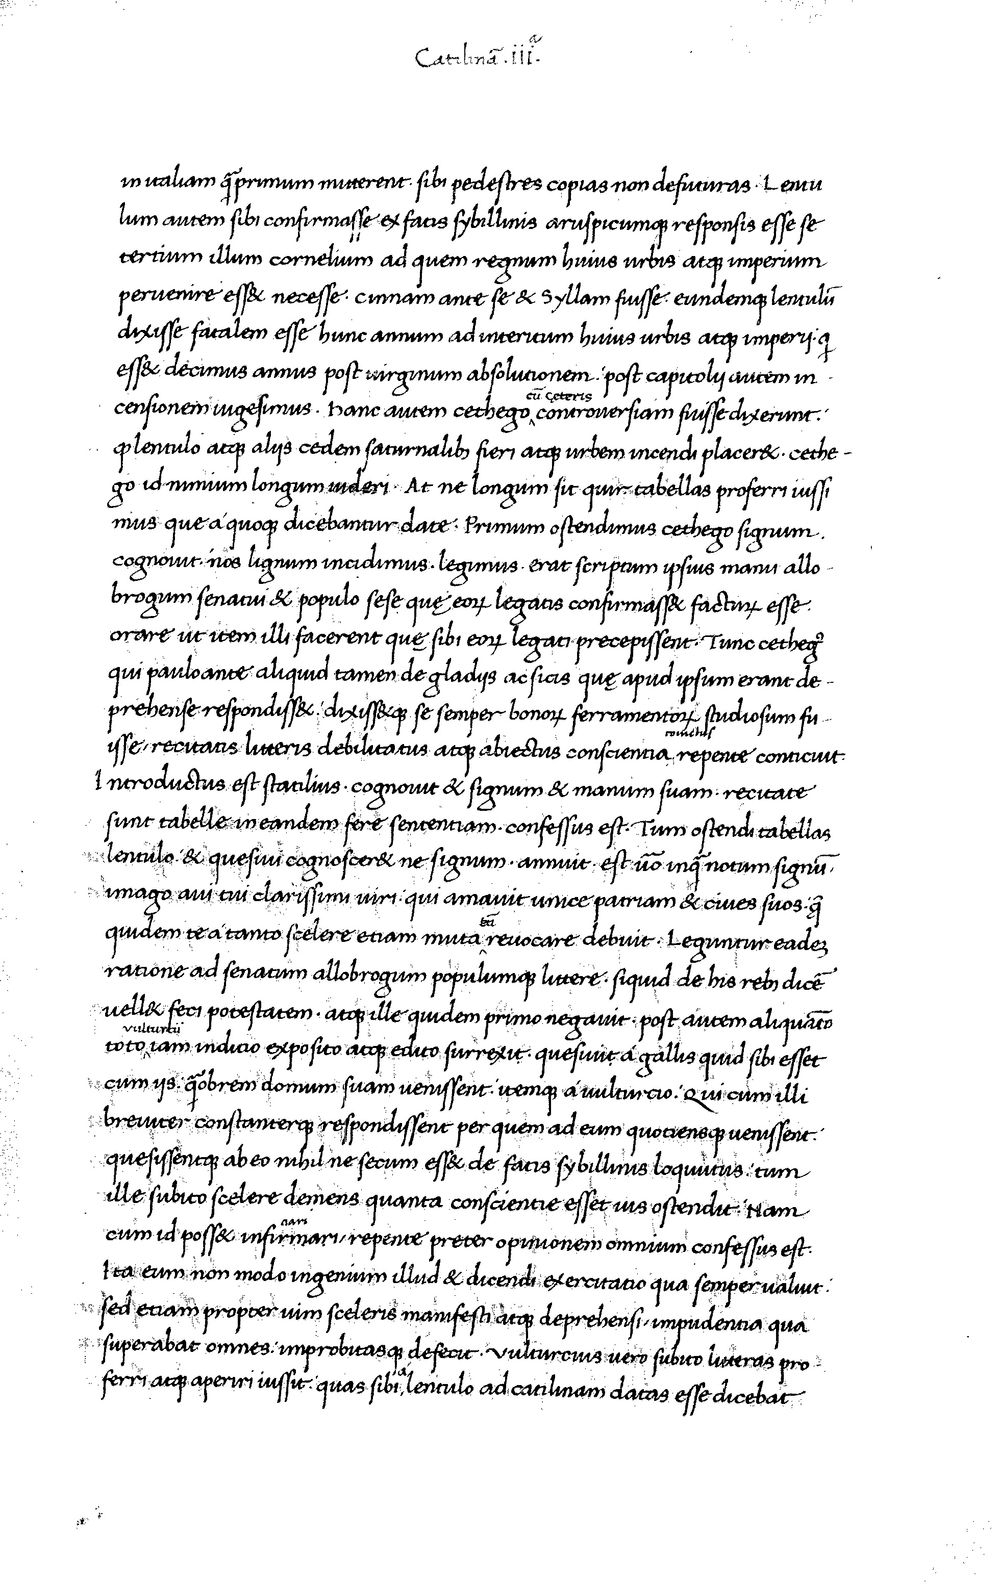 Catilinā .iiiᵃ.
in italiam q̃primum mitterent. sibi pedestres copias non defuturas. Lentu
lum autem sibi confirmasse ex fatis sybillinis aruspicumq; responsis esse se
tertium illum cornelium ad quem regnum huius urbis atq; imperium
peruenire ess& necesse. cinnam ante se & Syllam fuisse. eundemq; lentulū
dixisse fatalem esse hunc annum ad interitum huius urbis atq; imperij. q̄
ess& decimus annus post uirginum absolutionem. post capitolij autem in
censionem uigesimus. hanc autem cethego cū ceteris controuersiam fuisse dixerunt.
ꝙ lentulo atq; alijs cedem saturnalib; fieri atq; urbem incendi placer&. cethe-
go id nimium longum uideri. At ne longum sit quir. tabellas proferri iussi
mus que a quoq; dicebantur date. Primum ostendimus cethego signum.
cognouit. nos lignum incidimus. legimus. erat scriptum ipsius manu allo-
brogum senatui & populo sese quę eoꝝ legatis confirmass& factuꝝ esse.
orare ut item illi facerent quę sibi eoꝝ legati precepissent. Tunc cetheg᾿
qui pauloante aliquid tamen de gladijs ac sicis quę apud ipsum erant de-
prehense respondiss&. dixiss&q; se semper bonoꝝ ferramentoꝝ studiosum fu-
isse, recitatis litteris debilitatus atq; abiectus conscientia repente conticuit.
Introductus est statilius. cognouit & signum & manum suam. recitate
sunt tabelle in eandem fere sententiam. confessus est. Tum ostendi tabellas
lentulo & quesiui cognoscer& ne signum. annuit. est ūo inq̄ notum signū.
imago aui tui clarissimi uiri. qui amauit unice patriam & ciues suos. q̄
quidem te a tanto scelere etiam muta reuocare debuit. Leguntur eadeȝ
ratione ad senatum allobrogum populumq; littere. siquid de his reb; dicē
uell& feci potestatem. atq; ille quidem primo negauit. post autem aliquāto
toto vulturcij iam indicio exposito atq; edito surrexit. quesiuit a gallis quid sibi esset
cum ijs. q̄obrem domum suam uenissent. itemq; a uulturcio. Qui cum illi
breuiter constanterq; respondissent per quem ad eum quotiensq; uenissent.
quesissentq; ab eo nihil ne secum ess& de fatis sybillinis loquutus. tum
ille subito scelere demens quanta conscientie esset uis ostendit. Nam
cum id poss& infirmari, repente preter opinionem omnium confessus est.
Ita eum non modo ingenium illud & dicendi exercitatio qua semper ualuit.
sed etiam propter uim sceleris manifesti atq; deprehensi, impudentia qua
superabat omnes. improbitasq; defecit. Vulturcius uero subito litteras pro-
ferri atq; aperiri iussit. quas sibi a lentulo ad catilinam datas esse dicebat